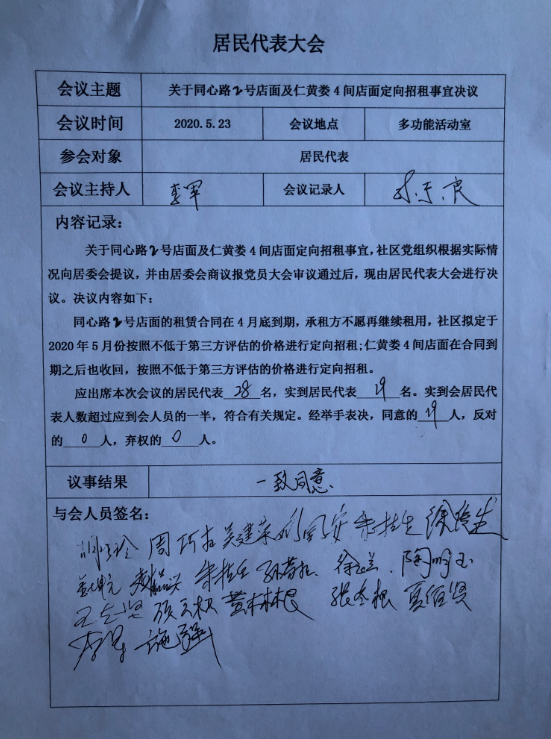 居民代表大会
会议主题 关于同心路2号店面及仁黄娄4间店面定向招租事宜决议
会议时间 2020.5.23 会议地点 多功能活动室
参会对象 居民代表
会议主持人 李军 会议记录人
内容记录：
关于同心路2号店面及仁黄娄4间店面定向招租事宜，社区党组织根据实际
情况向居委会提议，并由居委会商议报党员大会审议通过后，现由居民代表大会进行决
议。决议内容如下：
同心路2号店面的租赁合同在4月底到期，承租方不愿再继续租用，社区拟定于
2020年5月份按照不低于第三方评估的价格进行定向招租；仁黄娄4间店面在合同到
期之后也收回，按照不低于第三方评估的价格进行定向招租。
应出席本次会议的居民代表 28 名，实到居民代表 19 名。实到会居民代
表人数超过应到会人员的一半，符合有关规定。经举手表决，同意的 19 人，反对
的 0 人，弃权的 0 人。
议事结果 一致同意
与会人员签名：
吴建荣 朱桂生
陶明玉
黄林根 张冬根 夏伯贤
施强